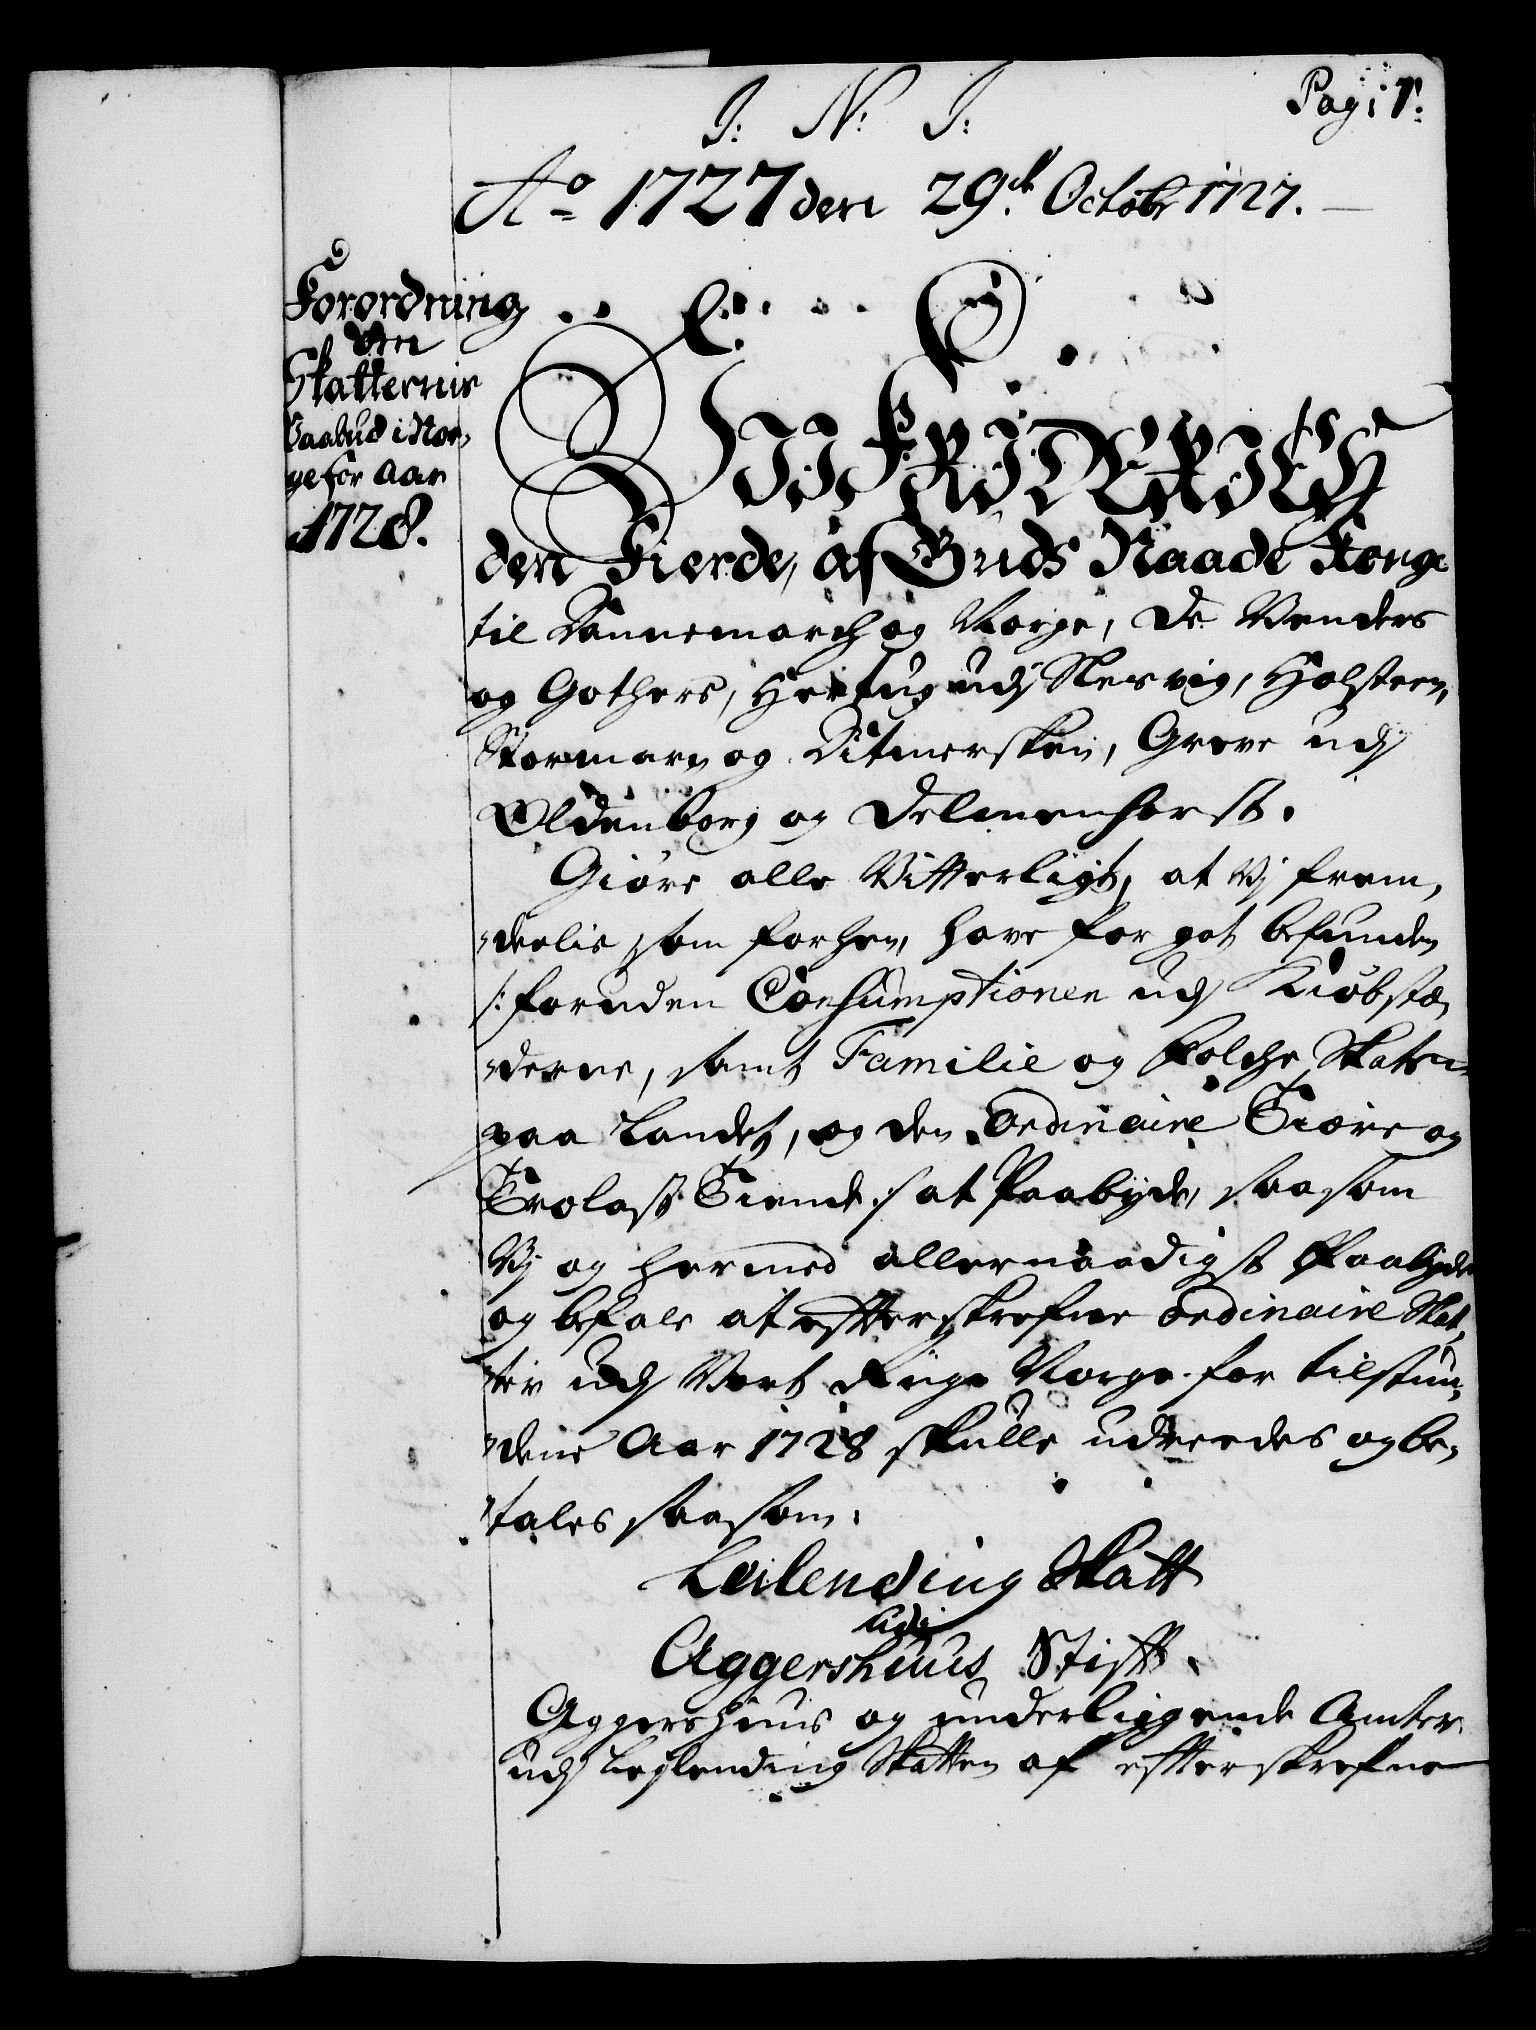 Pag: 1:
J: N: J:
Ao 1727 den 29de Octobr 1727.
Forordning
om
Skatternis
Paabud i Nor-
ge for Aar
1728.
WJ FRIDERICH
den Fierde, af Guds Naade Konge
til Dannemarch og Norge, de Venders
og Gothers, Hertug udj Slesvig, Holsteen,
Stormarn og Ditmersken, Greve udj
Oldenborg og Delmenhorst.
Giøre alle Vitterligt, at Vj frem-
deelis som forhen, have for got befunden
/: foruden Consumptionen udj Kiøbstæ-
derne, samt Familie og Folche Skatten
paa Landet, og den ordinaire Tiære og
Trolast Tiende :/ at Paabyde, saasom
Vj og hermed allernaadigst Paabyde
og befale at efterskrefne ordinaire Skat-
ter udj Vort Rige Norge for tilstun-
dene Aar 1728 skulle udreedes og be-
tales saasom.
Leilending Skatt
udi
Aggershuus Stift.
Aggershuus og underliggende Amter
udj Leylending Skatten af efterskrefne